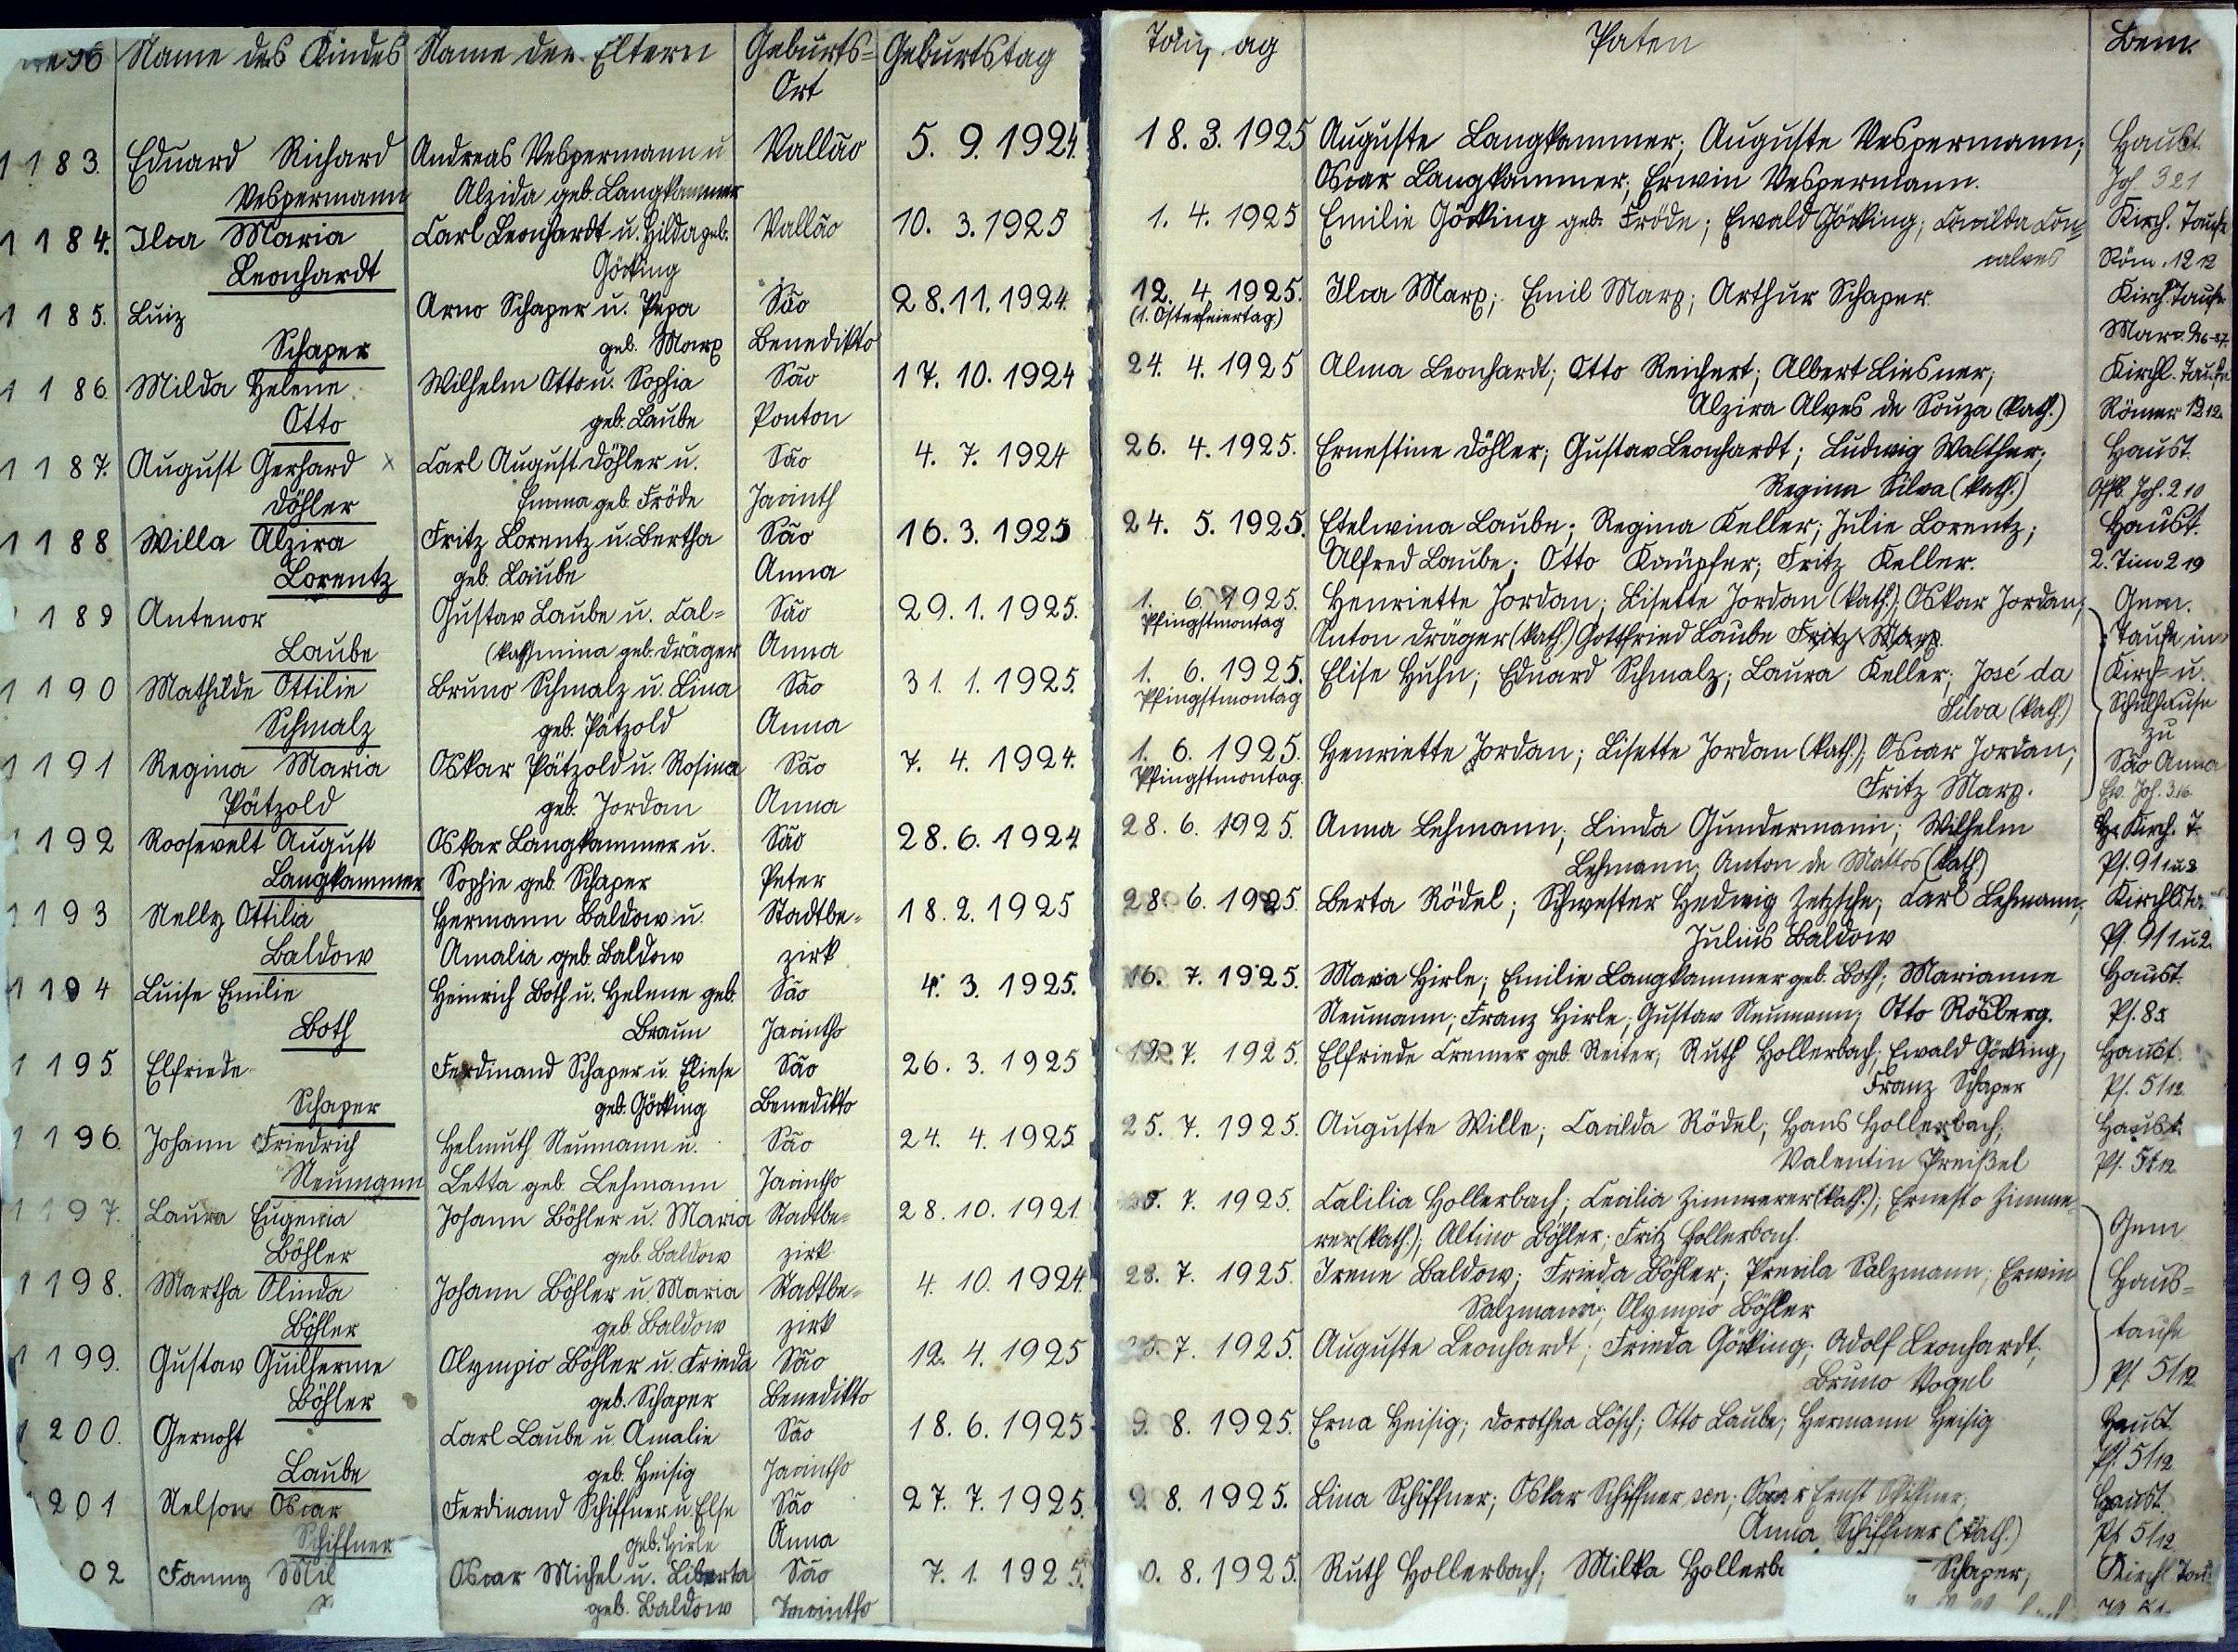 Name des Kindes Name der Eltern Geburts= Geburtstag
Ort
1183. Eduard Richard Andreas Vespermann u Vallão 5. 9. 1924.
Vespermann Alzida geb. Langkammer
1184. Ilca Maria Carl Leonhardt u. Hilda geb. Vallão 10. 3. 1925
Leonhardt Göcking
1185. Luiz Arno Schaper u. Pepa São 28. 11. 1924.
Schaper geb. Marx Benedikto
1186. Milda Helene Wilhelm Otto u. Sophia São 17. 10. 1924
Otto geb. Laube Ponton
1187. August Gerhard x Carl August Döhler u. São 4. 7. 1924
Döhler Emma geb. Fröde Jacinth
1188 Willa Alzira Fritz Lorentz u. Bertha São 16. 3. 1925
Lorentz geb. Laube Anna
189 Antenor Gustav Laube u. Cal= São 29. 1. 1925.
Laube (kath) mina geb. Dräger Anna
1190 Mathilde Ottilie Bruno Schmalz u. Lina São 31. 1. 1925.
Schmalz geb. Pätzold Anna
1191 Regina Maria Oskar Pätzold u. Rosina São 7. 4. 1924.
Pätzold geb. Jordan Anna
1192 Roosevelt August Oskar Langkammer u. São 28. 6. 1924
Langkammer Sophie geb. Schaper Peter
1193 Nelly Ottilia Hermann Baldow u. Stadtbe= 18. 2. 1925
Baldow Amalia geb. Baldow zirk
1194 Luise Emilie Heinrich Both u. Helene geb. São 4. 3. 1925.
Both Braun Jacintho
1195 Elfriede Ferdinand Schaper u. Eliese São 26. 3. 1925
Schaper geb. Göcking Benedikto
1196. Johann Friedrich Helmuth Neumann u. São 24. 4. 1925
Neumann Letta geb. Lehmann Jacintho
1197. Laura Eugenia Johann Böhler u. Maria Stadtbe= 28. 10. 1921
Böhler geb. Baldow zirk
1198. Martha Olinda Johann Böhler u. Maria Stadtbe= 4. 10. 1924.
Böhler geb. Baldow zirk
1199. Gustav Guilherme Olympio Böhler u. Frieda São 12. 4. 1925
Böhler geb. Schaper Benedikto
1200. Gernoht Carl Laube u. Amalie São 18. 6. 1925
Laube geb. Heisig Jacintho
201 Nelson Oscar Ferdinand Schiffner u. Else São 27. 7. 1925.
Schiffner geb. Hirle Anna
02 Fanny Mil Oscar Michel u. Liberta São 7. 1. 1925.
geb. Baldow Jacintho
Tau ag Paten Bem.
18. 3. 1925 Auguste Langkammer; Auguste Vespermann; Haust.
Oscar Langkammer; Erwin Vespermann. Joh 3 21
1. 4. 1925 Emilie Göcking geb. Fröde; Ewald Göcking; Cacilda Con= Kirch. Taufe
calves Röm. 12 12
12. 4 1925. Ilca Marx; Emil Marx; Arthur Schaper. Kirch. Taufe
(1. Osterfeiertag)
24. 4. 1925 Alma Leonhardt; Otto Reichert; Albert Liesner; Kirchl. Taufe
Alzira Alves de Souza (kath.) Römer 12 12.
26. 4. 1925. Ernestine Döhler; Gustav Leonhardt; Ludwig Walther; Haust.
Regina Silva (kath.) Offb. Joh. 2 10
24. 5. 1925. Etelwina Laube; Regina Keller; Julie Lorentz; Haust.
Alfred Laube; Otto Kämpfer; Fritz Keller. 2. Tim 2 19
1. 6. 1925. Henriette Jordan; Lisette Jordan (kath.); Oskar Jordan; Gem.
Pfingstmontag Anton Dräger (kath.) Gottfried Laube Fritz Marx. Taufe in
1. 6. 1925. Elise Huhn; Eduard Schmalz; Laura Keller; José da Kirch= u.
Pfingstmontag Silva (kath.) Schulhause
zu
1. 6. 1925. Henriette Jordan; Lisette Jordan (kath.); Oscar Jordan; São Anna
Pfingstmontag. Fritz Marx. Ev. Joh. 3 16
28. 6. 1925. Anna Lehmann; Linda Gundermann; Wilhelm Kirch. T.
Lehmann; Anton de Mattos (kath) Ps. 91 1 u 2
28. 6. 1925. Berta Rödel; Schwester Hedwig Zetzsche; Carl Lehmann; Kirchl. Ta
Julius Baldow Ps. 91 1 u 2.
16. 7. 1925. Mara Hirle; Emilie Langkammer geb. Both; Marianne Haust.
Neumann; Franz Hirle; Gustav Neumann; Otto Rösberg. Ps. 8 5.
19. 7. 1925. Elfriede Cremer geb. Reiter; Ruth Hollerbach; Ewald Göcking; Haust.
Franz Schaper Ps. 51 12
25. 7. 1925. Auguste Wille; Cacilda Rödel; Hans Hollerbach; Haust.
Valentin Preißel Ps. 51 12
7. 1925. Calilia Hollerbach; Cecilia Zimmerer (kath.); Ernesto Zimme=
rer (kath.); Altino Böhler; Fritz Hollerbach. Gem
28. 7. 1925. Irene Baldow; Frieda Böhler; Precila Salzmann; Erwin Haus=
Salzmann; Olympio Böhler
7. 1925. Auguste Leonhardt; Frieda Göcking; Adolf Leonhardt; taufe
Bruno Vogel Ps. 51 12
9. 8. 1925. Erna Heisig; Dorothea Lösch; Otto Laube; Hermann Heisig Haust.
Ps. 51 12
9. 8. 1925. Lina Schiffner; Oskar Schiffner sen; Oscar Ernst Schiffner; Haust.
Anna Schiffner (kath.) Ps. 51 12
0. 8. 1925. Ruth Hollerbach; Milka Hollerb Schaper; Kirchl. Tau